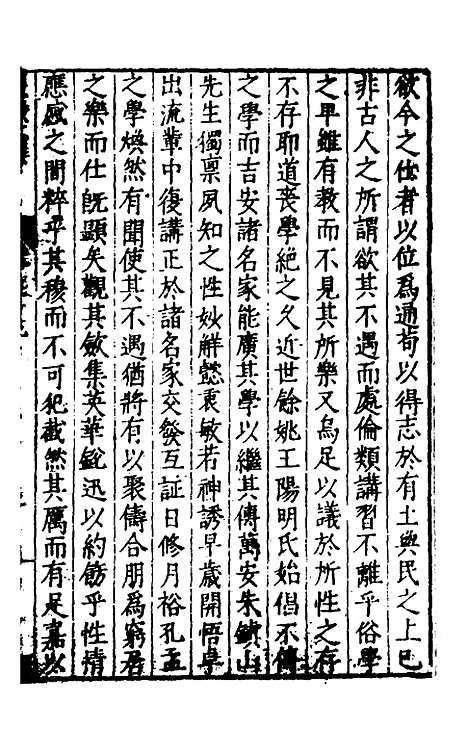 欲今之仕者以位爲通苟以得志於有土與民之上已
非古人之所謂欲其不遇而處倫類講習不離乎俗學
之甲雖有教而不見其所樂又烏足以議於所性之存
不存耶道喪學絕之久近世餘姚王陽明氏始倡不傳
之學而吉安諸名家能廣其學以繼其傳萬安朱鎮山
先生獨禀夙知之性妙解懿衷敏若神誘早歲開悟
出流輩中復講正於諸名家交發互証日修月裕孔孟
之學煥然有聞使其不遇猶將有以聚儔合朋爲窮居
之樂而仕旣顯矣觀其斂集英華銳迅以約飭乎性情
應感之間粹乎其穆而不可犯截然其厲而有足嘉以